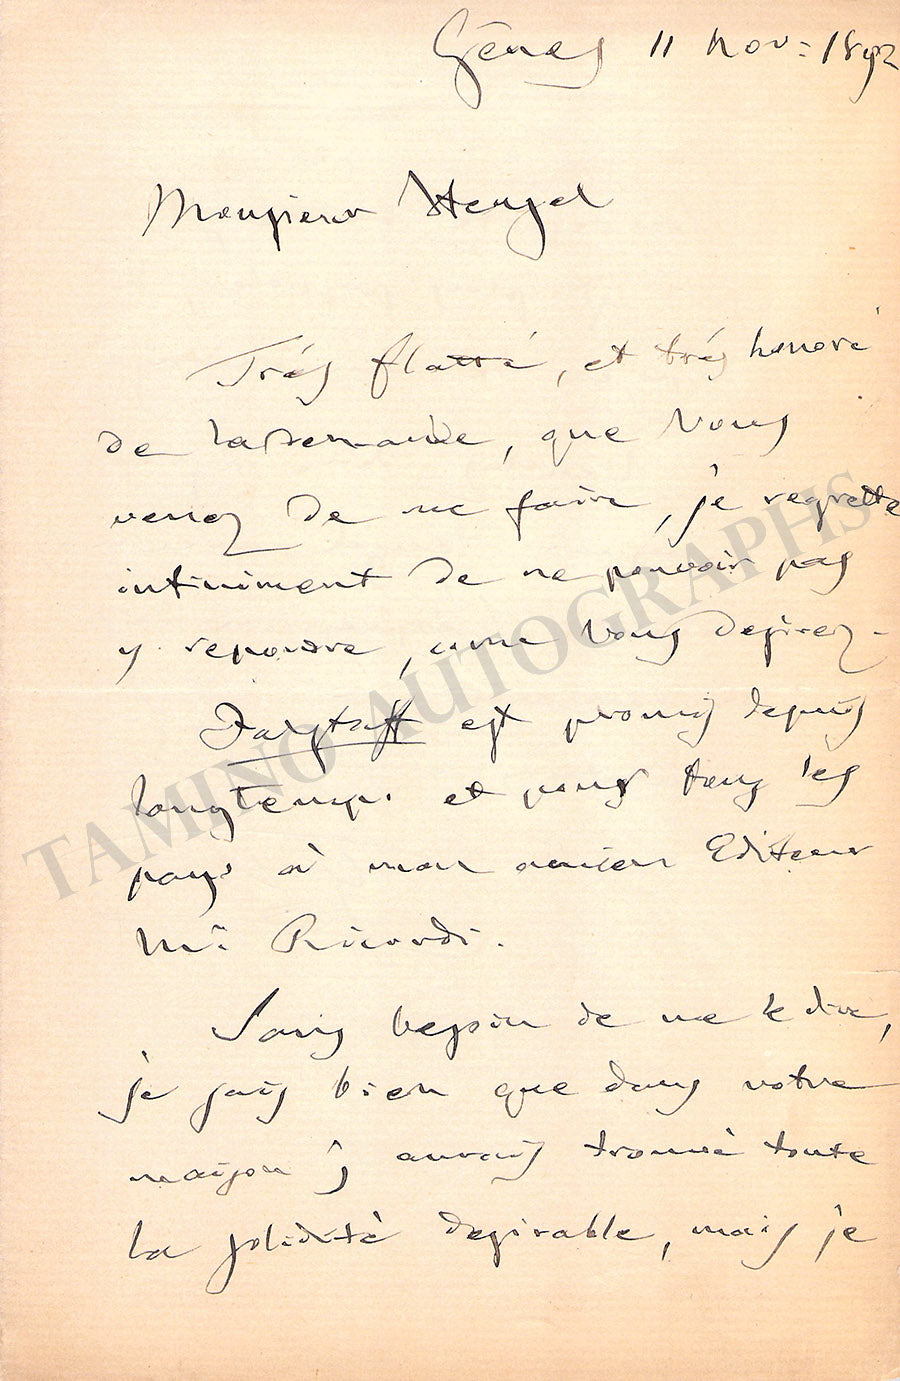 Gênes 11 Nov: 1892
Monsieur Heugel
Trés flatté, et trés honoré
de la demande, que Vous
venez de me faire, je regrette
infiniment de ne pouvoir pas
y repondre, come Vous desirez -
Falstaff est promis depuis
longtemps et pour tous les
pays à mon ancien Editeur
Mr: Ricordi.
Sans besoin de me le dire,
je sais bien que dans votre
maison j'aurais trouvé toute
la solidité desirable, mais je
TAMINO AUTOGRAPHS